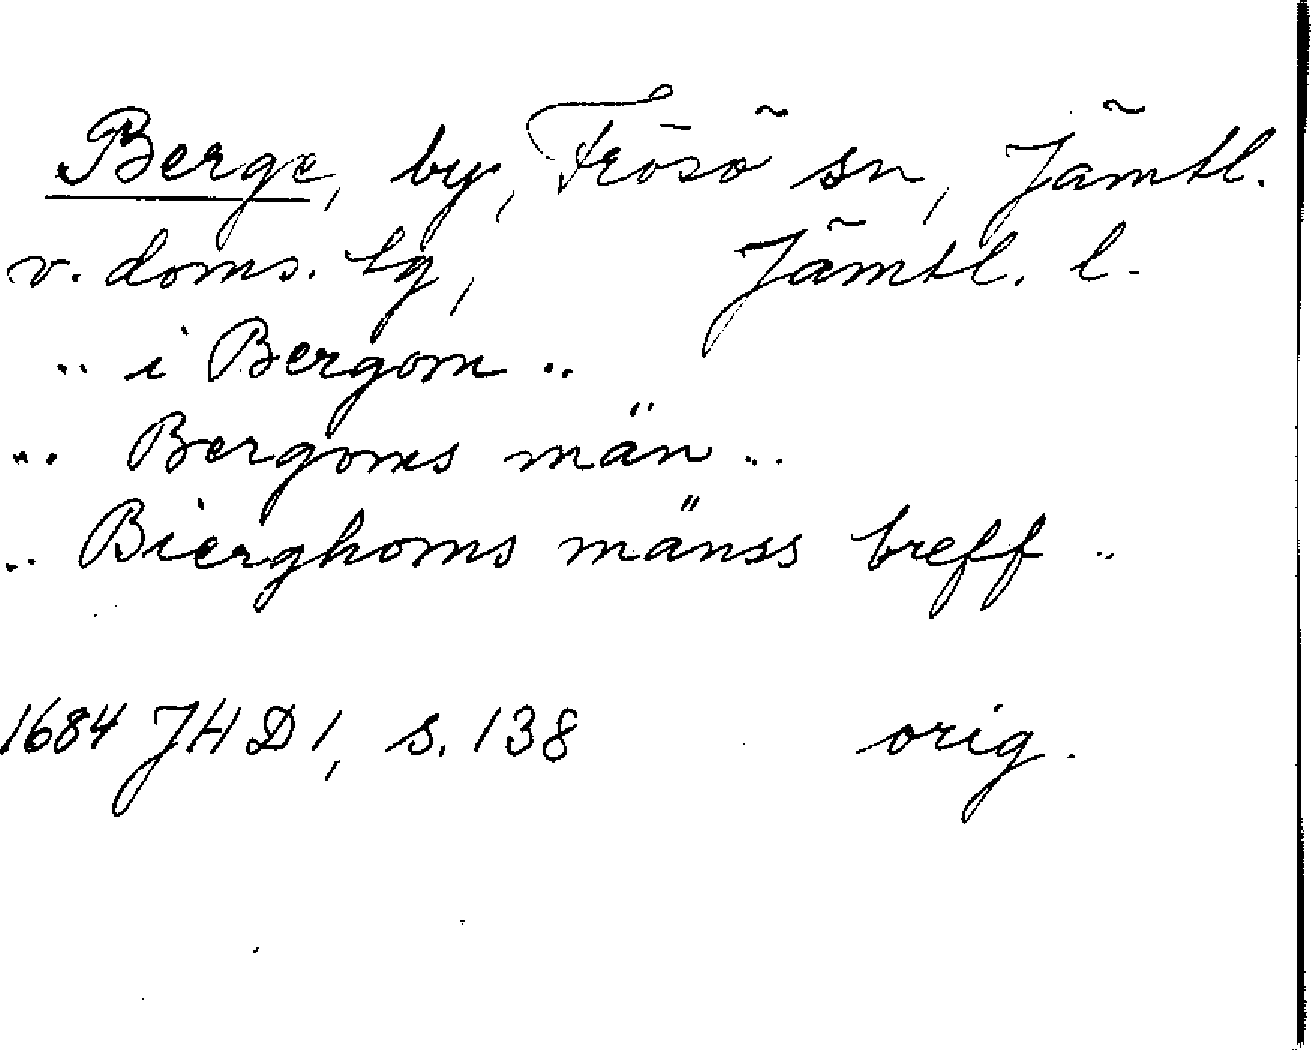 Berge, by, Frösö sn, Jämtl.
v. doms. tg, Jämtl. l.
.. i Bergom ..
.. Bergoms män ..
.. Bierghoms mänss breff ..
1684 JHD 1, s. 138 orig.